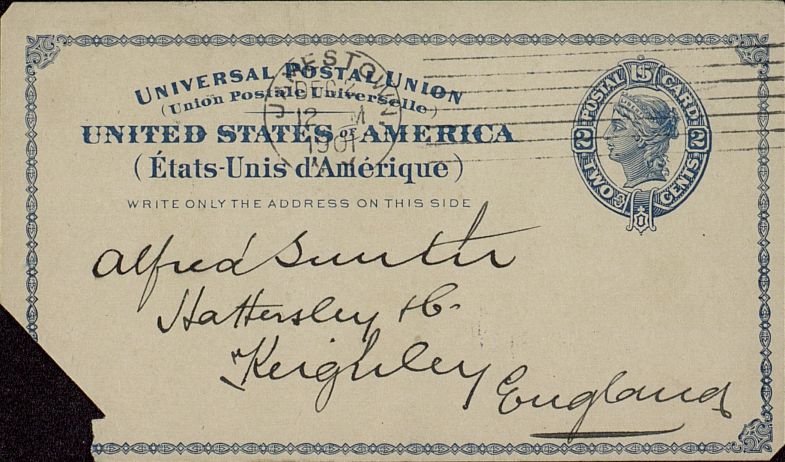 UNIVERSAL POSTAL UNION
(Union Postale Universelle)
UNITED STATES OF AMERICA
(États-Unis d'Amérique)
WRITE ONLY THE ADDRESS ON THIS SIDE
JAMESTOWN
DEC
12 M
1901
N Y
U.S. POSTAL CARD
LIBERTY
2 2
TWO CENTS
Alfred
Hattersley & Co.
Keighley
England